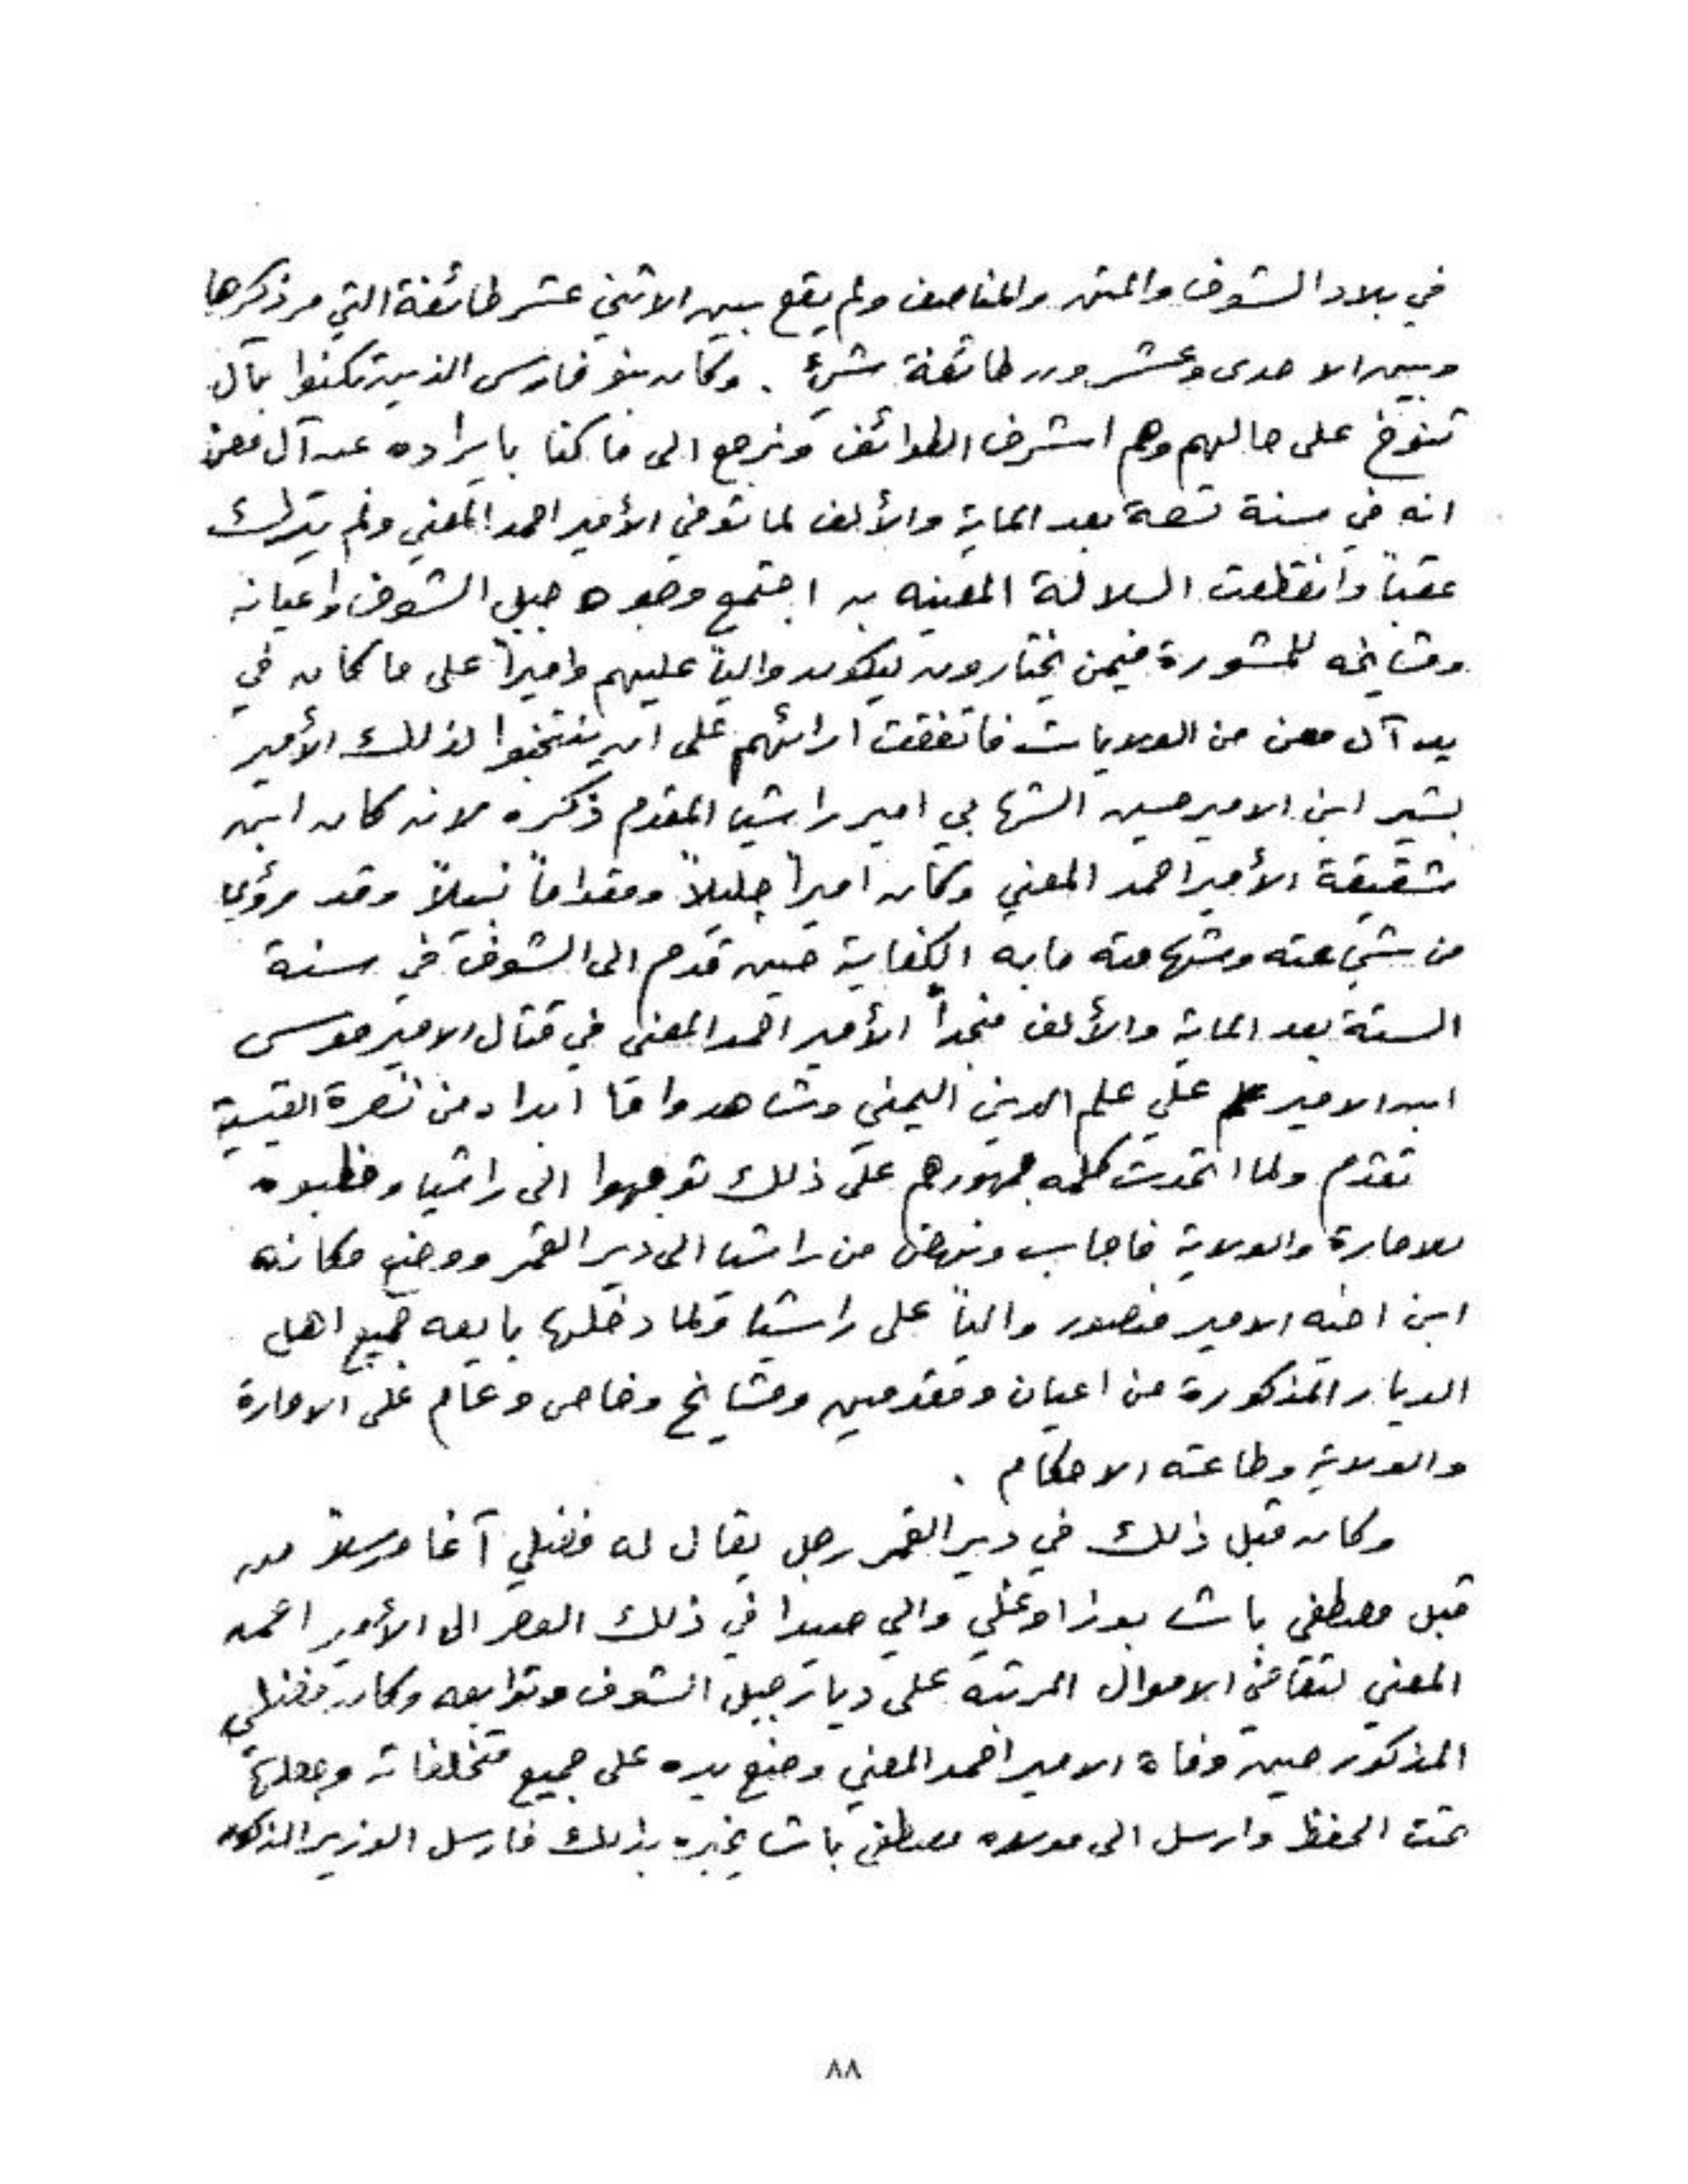 في بلاد الشوف والمتن والمناصف ولم يقع بين الاثني عشر طائفة التي مر ذكرها
وبين الاحدى وعشرون طائفة شيء . وكان بنو فارس الذين تكنوا بآل
تنوخ على حالهم وهم اشرف الطوائف ونرجع الى ما كنا بايراده عن آل معن
انه في سنة تسعة بعد الماية والألف لما توفي الأمير احمد المعني ولم يترك
عقباً وانقطعت السلالة المعينه به اجتمع وجوه جبل الشوف واعيانه
ومشايخه للمشورة فيمن يختارون ليكون والياً عليهم واميراً على ما كان في
يد آل معن من الولايات فاتفقت ارائهم على ان ينتخبوا لذلك الأمير
بشير ابن الامير حسين الشهابي امير راشيا المقدم ذكره لانه كان ابن
شقيقة الأمير احمد المعني وكان اميراً جليلاً ومقداماً نبيلاً وقد رؤيا
من شجاعته وشهامته ما به الكفاية حين قدم الى الشوف في سنة
الستة بعد الماية والألف منجداً الأمير احمد المعني في قتال الامير موسى
ابن الامير علم علي علم الدين اليمني وشاهدوا ما ابداه من نصرة القيسية
تقدم ولما اتحدت كلمه جمهورهم على ذلك توجهوا الى راشيا وخطبوه
للامارة والولاية فاجاب ونهض من راشيا الى دير القمر ووضع مكانه
ابن اخيه الامير منصور والياً على راشيا ولما دخلها بايعه جميع اهل
الديار المذكورة من اعيان ومقدمين ومشايخ وخاص وعام على الامارة
والولاية وطاعته الاحكام .
وكان قبل ذلك في دير القمر رجل يقال له فضلي آغا مرسلاً من
قبل مصطفى باشا بوزاوغلي والي صيدا في ذلك العصر الى الأمير احمد
المعني لتقاضي الاموال المرتبه على ديار جبل الشوف وتوابعه وكان فضلي
المذكور حين وفاة الامير احمد المعني وضع يده على جميع متخلفاته وجعلها
تحت الحفظ وارسل الى مولاه مصطفى باشا يخبره بذلك فارسل الوزير المذكور
٨٨